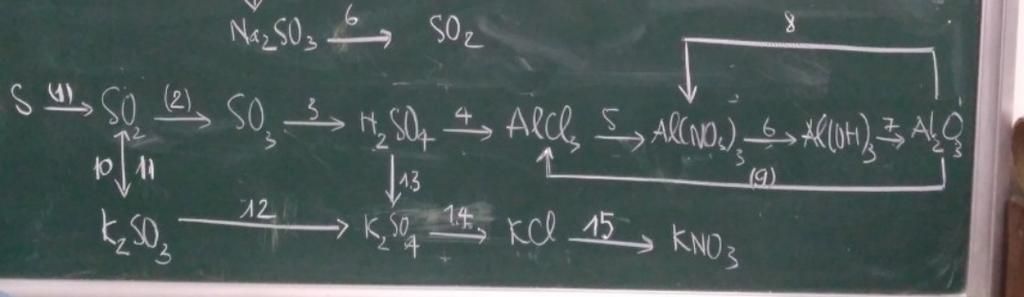 Na₂SO₃ 6→ SO₂
8
S (1)→ SO₂ (2)→ SO₃ 3→ H₂SO₄ 4→ AlCl₃ 5→ Al(NO₃)₃ 6→ Al(OH)₃ 7→ Al₂O₃
10 11 13 (9)
K₂SO₃ 12→ K₂SO₄ 14→ KCl 15→ KNO₃